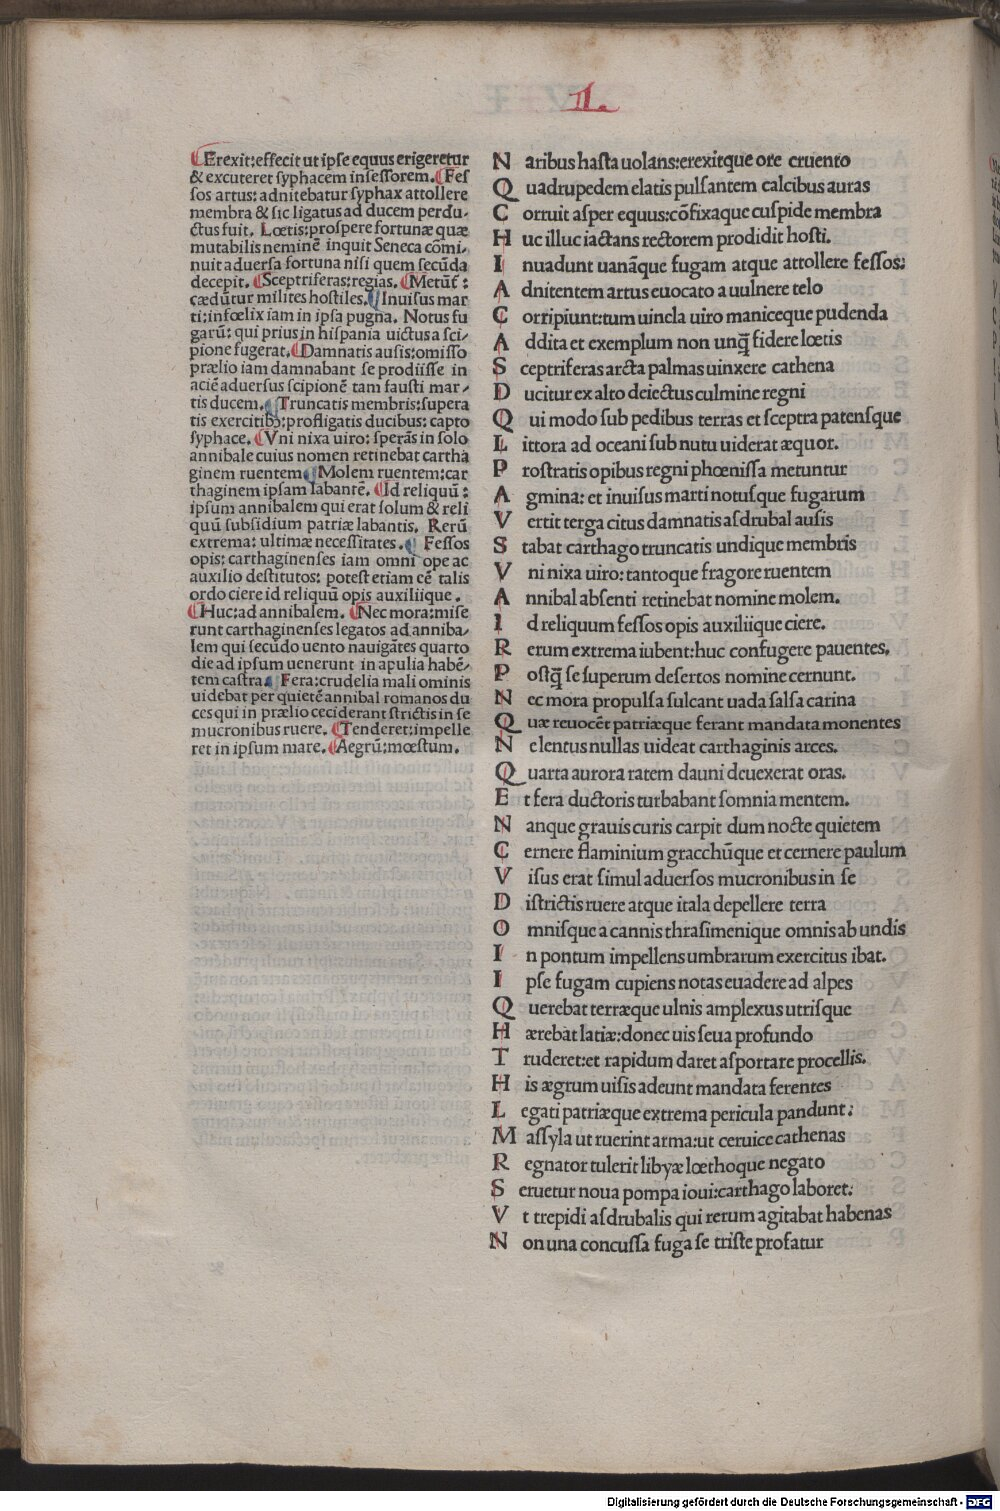 II.
Erexit:effecit ut ipse equus erigeretur
& excuteret syphacem insessorem. Fes
sos artus: adnitebatur syphax attollere
membra & sic ligatus ad ducem perdu-
ctus fuit. Lœtis:prospere fortunæ quæ
mutabilis neminē inquit Seneca cōmi-
nuit aduersa fortuna nisi quem secūda
decepit. Sceptriferas:regias.
cædūtur milites hostiles. Inuisus mar
ti:infœlix iam in ipsa pugna. Notus fu
garū: qui prius in hispania uictus a sci-
pione fugerat. Damnatis ausis:omisso
prælio iam damnabant se prodiisse in
aciē aduersus scipionē tam fausti mar-
tis ducem. Truncatis membris:supera
tis exercitibꝰ:profligatis ducibus: capto
syphace. Vni nixa uiro: sperās in solo
annibale cuius nomen retinebat cartha
ginem ruentem Molem ruentem:car
thaginem ipsam labantē. Id reliquū:
ipsum annibalem qui erat solum & reli
quū subsidium patriæ labantis. Rerū
extrema: ultimæ necessitates. Fessos
opis: carthaginenses iam omni ope ac
auxilio destitutos: potest etiam cē talis
ordo ciere id reliquū opis auxiliique.
Huc: ad annibalem. Nec mora:mise
runt carthaginenses legatos ad anniba-
lem qui secūdo uento nauigātes quarto
die ad ipsum uenerunt in apulia habē-
tem castra. Fera:crudelia mali ominis
uidebat per quietē annibal romanos du
ces qui in prælio ceciderant strictis in se
mucronibus ruere. Tenderet:impelle
ret in ipsum mare. Aegrū:mœstum.
Naribus hasta uolans:erexitque ore cruento
Quadrupedem elatis pulsantem calcibus auras
Corruit asper equus:cōfixaque cuspide membra
Huc illuc iactans rectorem prodidit hosti.
Inuadunt uanāque fugam atque attollere fessos:
Adnitentem artus euocato a uulnere telo
Corripiunt:tum uincla uiro maniceque pudenda
Addita et exemplum non unq̄ fidere lœtis
Sceptriferas arcta palmas uinxere cathena
Ducitur ex alto deiectus culmine regni
Qui modo sub pedibus terras et sceptra patensque
Littora ad oceani sub nutu uiderat æquor.
Prostratis opibus regni phœnissa metuntur
Agmina: et inuisus marti notusque fugarum
Vertit terga citus damnatis asdrubal ausis
Stabat carthago truncatis undique membris
Vni nixa uiro: tantoque fragore ruentem
Annibal absenti retinebat nomine molem.
Id reliquum fessos opis auxiliique ciere.
Rerum extrema iubent:huc confugere pauentes,
Postq̄ se superum desertos nomine cernunt.
Nec mora propulsa sulcant uada salsa carina
Quæ reuocēt patriæque ferant mandata monentes
Ne lentus nullas uideat carthaginis arces.
Quarta aurora ratem dauni deuexerat oras.
Et fera ductoris turbabant somnia mentem.
Nanque grauis curis carpit dum nocte quietem
Cernere flaminium gracchūque et cernere paulum
Visus erat simul aduersos mucronibus in se
Districtis ruere atque itala depellere terra
Omnisque a cannis thrasimenique omnis ab undis
In pontum impellens umbrarum exercitus ibat.
Ipse fugam cupiens notas euadere ad alpes
Querebat terræque ulnis amplexus utrisque
Hærebat latiæ:donec uis seua profundo
Truderet:et rapidum daret asportare procellis.
His ægrum uisis adeunt mandata ferentes
Legati patriæque extrema pericula pandunt:
Massyla ut ruerint arma:ut ceruice cathenas
Regnator tulerit libyæ lœthoque negato
Seruetur noua pompa ioui:carthago laboret:
Vt trepidi asdrubalis qui rerum agitabat habenas
Non una concussa fuga se triste profatur
Digitalisierung gefördert durch die Deutsche Forschungsgemeinschaft - DFG